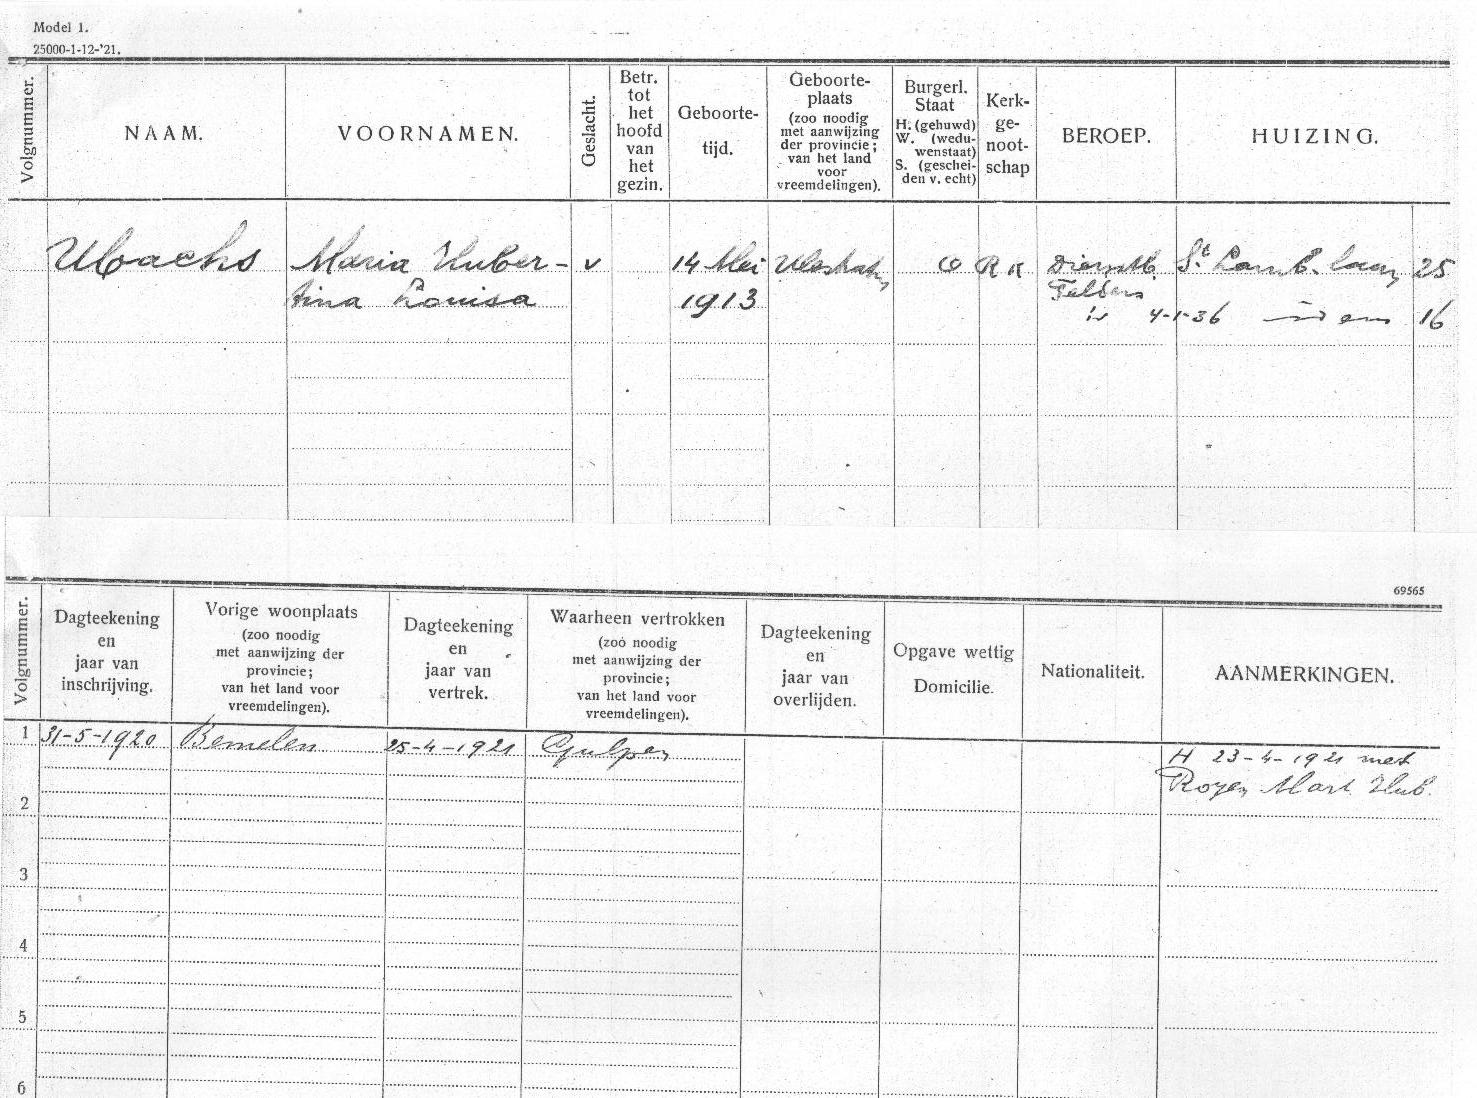 Model 1.
25000-1-12-'21.
Volgnummer.
NAAM.
VOORNAMEN.
Geslacht.
Betr.
tot
het
hoofd
van
het
gezin.
Geboorte-
tijd.
Geboorte-
plaats
(zoo noodig
met aanwijzing
der provincie;
van het land
voor
vreemdelingen).
Burgerl.
Staat
H. (gehuwd)
W. (wedu-
wenstaat)
S. (geschei-
den v. echt)
Kerk-
ge-
noot-
schap
BEROEP.
HUIZING.
Ubachs Maria Huber- v 14 Mei O R K Dienstb. St. Lamb. laan 25
tina Louisa 1913 Felders
4-1-36 idem 16
69565
Volgnummer.
Dagteekening
en
jaar van
inschrijving.
Vorige woonplaats
(zoo noodig
met aanwijzing der
provincie;
van het land voor
vreemdelingen).
Dagteekening
en
jaar van
vertrek.
Waarheen vertrokken
(zoo noodig
met aanwijzing der
provincie;
van het land voor
vreemdelingen).
Dagteekening
en
jaar van
overlijden.
Opgave wettig
Domicilie.
Nationaliteit.
AANMERKINGEN.
1 31-5-1920 Bemelen 25-4-1921 Gulpen H 23-4-1921 met
Royen Mart. Hub.
2
3
4
5
6